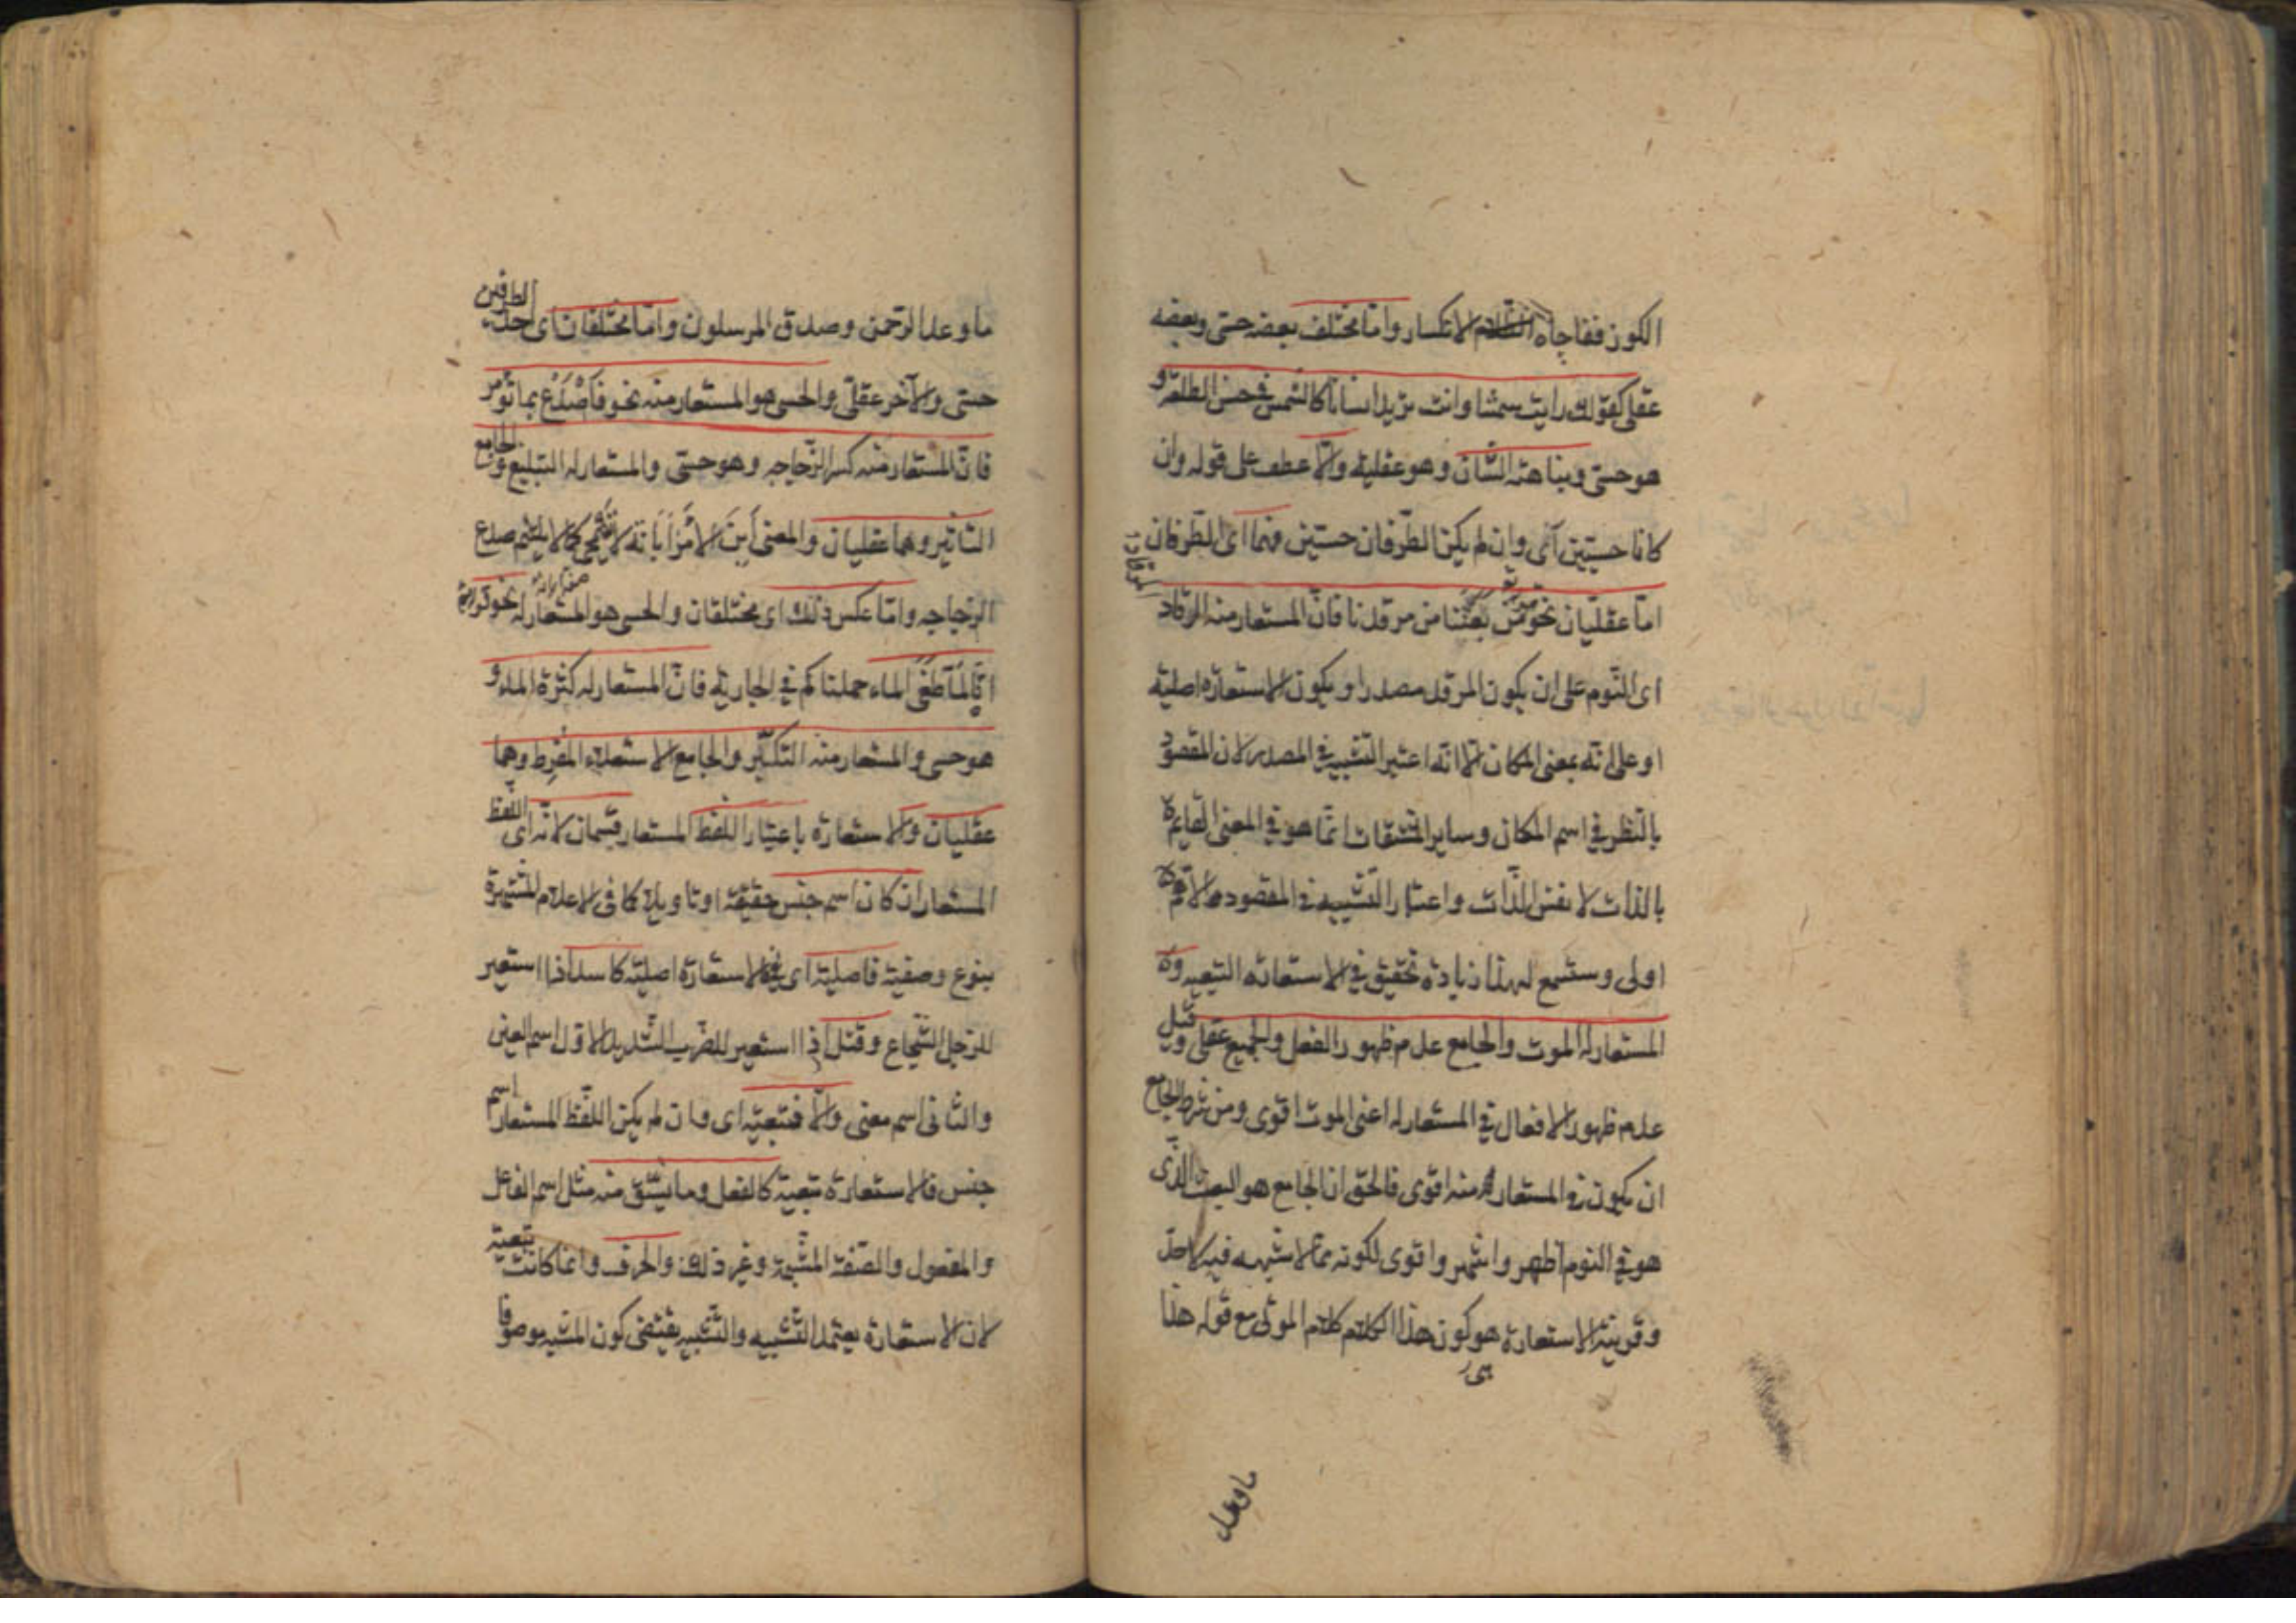 الكون ففاجاه الانكسار واما مختلف بعضه حسى وبعضه
عقلى كقولك رايت شمسا وانت تريد انسانا كالشمس فى حسن الطلعة و
هو حسى ونباهة الشان وهو عقلية والا عطف على قوله وان
كانا حسيين اى وان لم يكن الطرفان حسيين فهما اى الطرفان
اما عقليان نحو من بعثنا من مرقدنا فان المستعار منه الرقاد
اى النوم على ان يكون المرقد مصدرا ويكون الاستعارة اصلية
او على انه بمعنى المكان الا انه اعتبر التشبيه فى المصدر لان المقصود
بالنظر فى اسم المكان وساير المشتقات انما هو فى المعنى القايم
بالذات لا نفس الذات واعتبار التشبيه فى المقصود الاهم
اولى وستسمع لهذا زيادة تحقيق فى الاستعارة التبعية و
المستعار له الموت والجامع عدم ظهور الفعل والجميع عقلى وقيل
عدم ظهور الافعال فى المستعار له اعنى الموت اقوى ومن شرط الجامع
ان يكون فى المستعار منه اقوى فالحق ان الجامع هو البعث الذى
هو فى النوم اظهر واشهر واقوى لكونه مما لا شبهه فيه لاحد
وقرينة الاستعارة هو كون هذا الكلام كلام الموتى مع قوله هذا
ما وعد
ما وعد الرحمن وصدق المرسلون واما مختلفان اى احد الطرفين
حسى والآخر عقلى والحسى هو المستعار منه نحو فاصدع بما تؤمر
فان المستعار منه كسر الزجاجه وهو حسى والمستعار له التبليغ والجامع
التاثير وهما عقليان والمعنى ابن الامر ابانة لا تنمحى كما لا يلتئم صدع
الزجاجه واما عكس ذلك اى مختلفان والحسى هو المستعار له نحو قوله
انا لما طغى الماء حملناكم فى الجارية فان المستعار له كثرة الماء و
هو حسى والمستعار منه التكبر والجامع الاستعلاء المفرط وهما
عقليان والاستعارة باعتبار اللفظ المستعار قسمان لانه اى اللفظ
المستعار ان كان اسم جنس حقيقة او تاويلا كما فى الاعلام المشتهرة
بنوع وصفية فاصلية اى فالاستعارة اصلية كاسد اذا استعير
للرجل الشجاع وقتل اذا استعير للضرب الشديد الاول اسم العين
والثانى اسم معنى والا فتبعية اى وان لم يكن اللفظ المستعار اسم
جنس فالاستعارة تبعية كالفعل وما يشتق منه مثل اسم الفاعل
والمفعول والصفة المشبهة وغير ذلك والحرف وانما كانت تبعية
لان الاستعارة يعتمد التشبيه والتشبيه يقتضى كون المشبه موصوفا